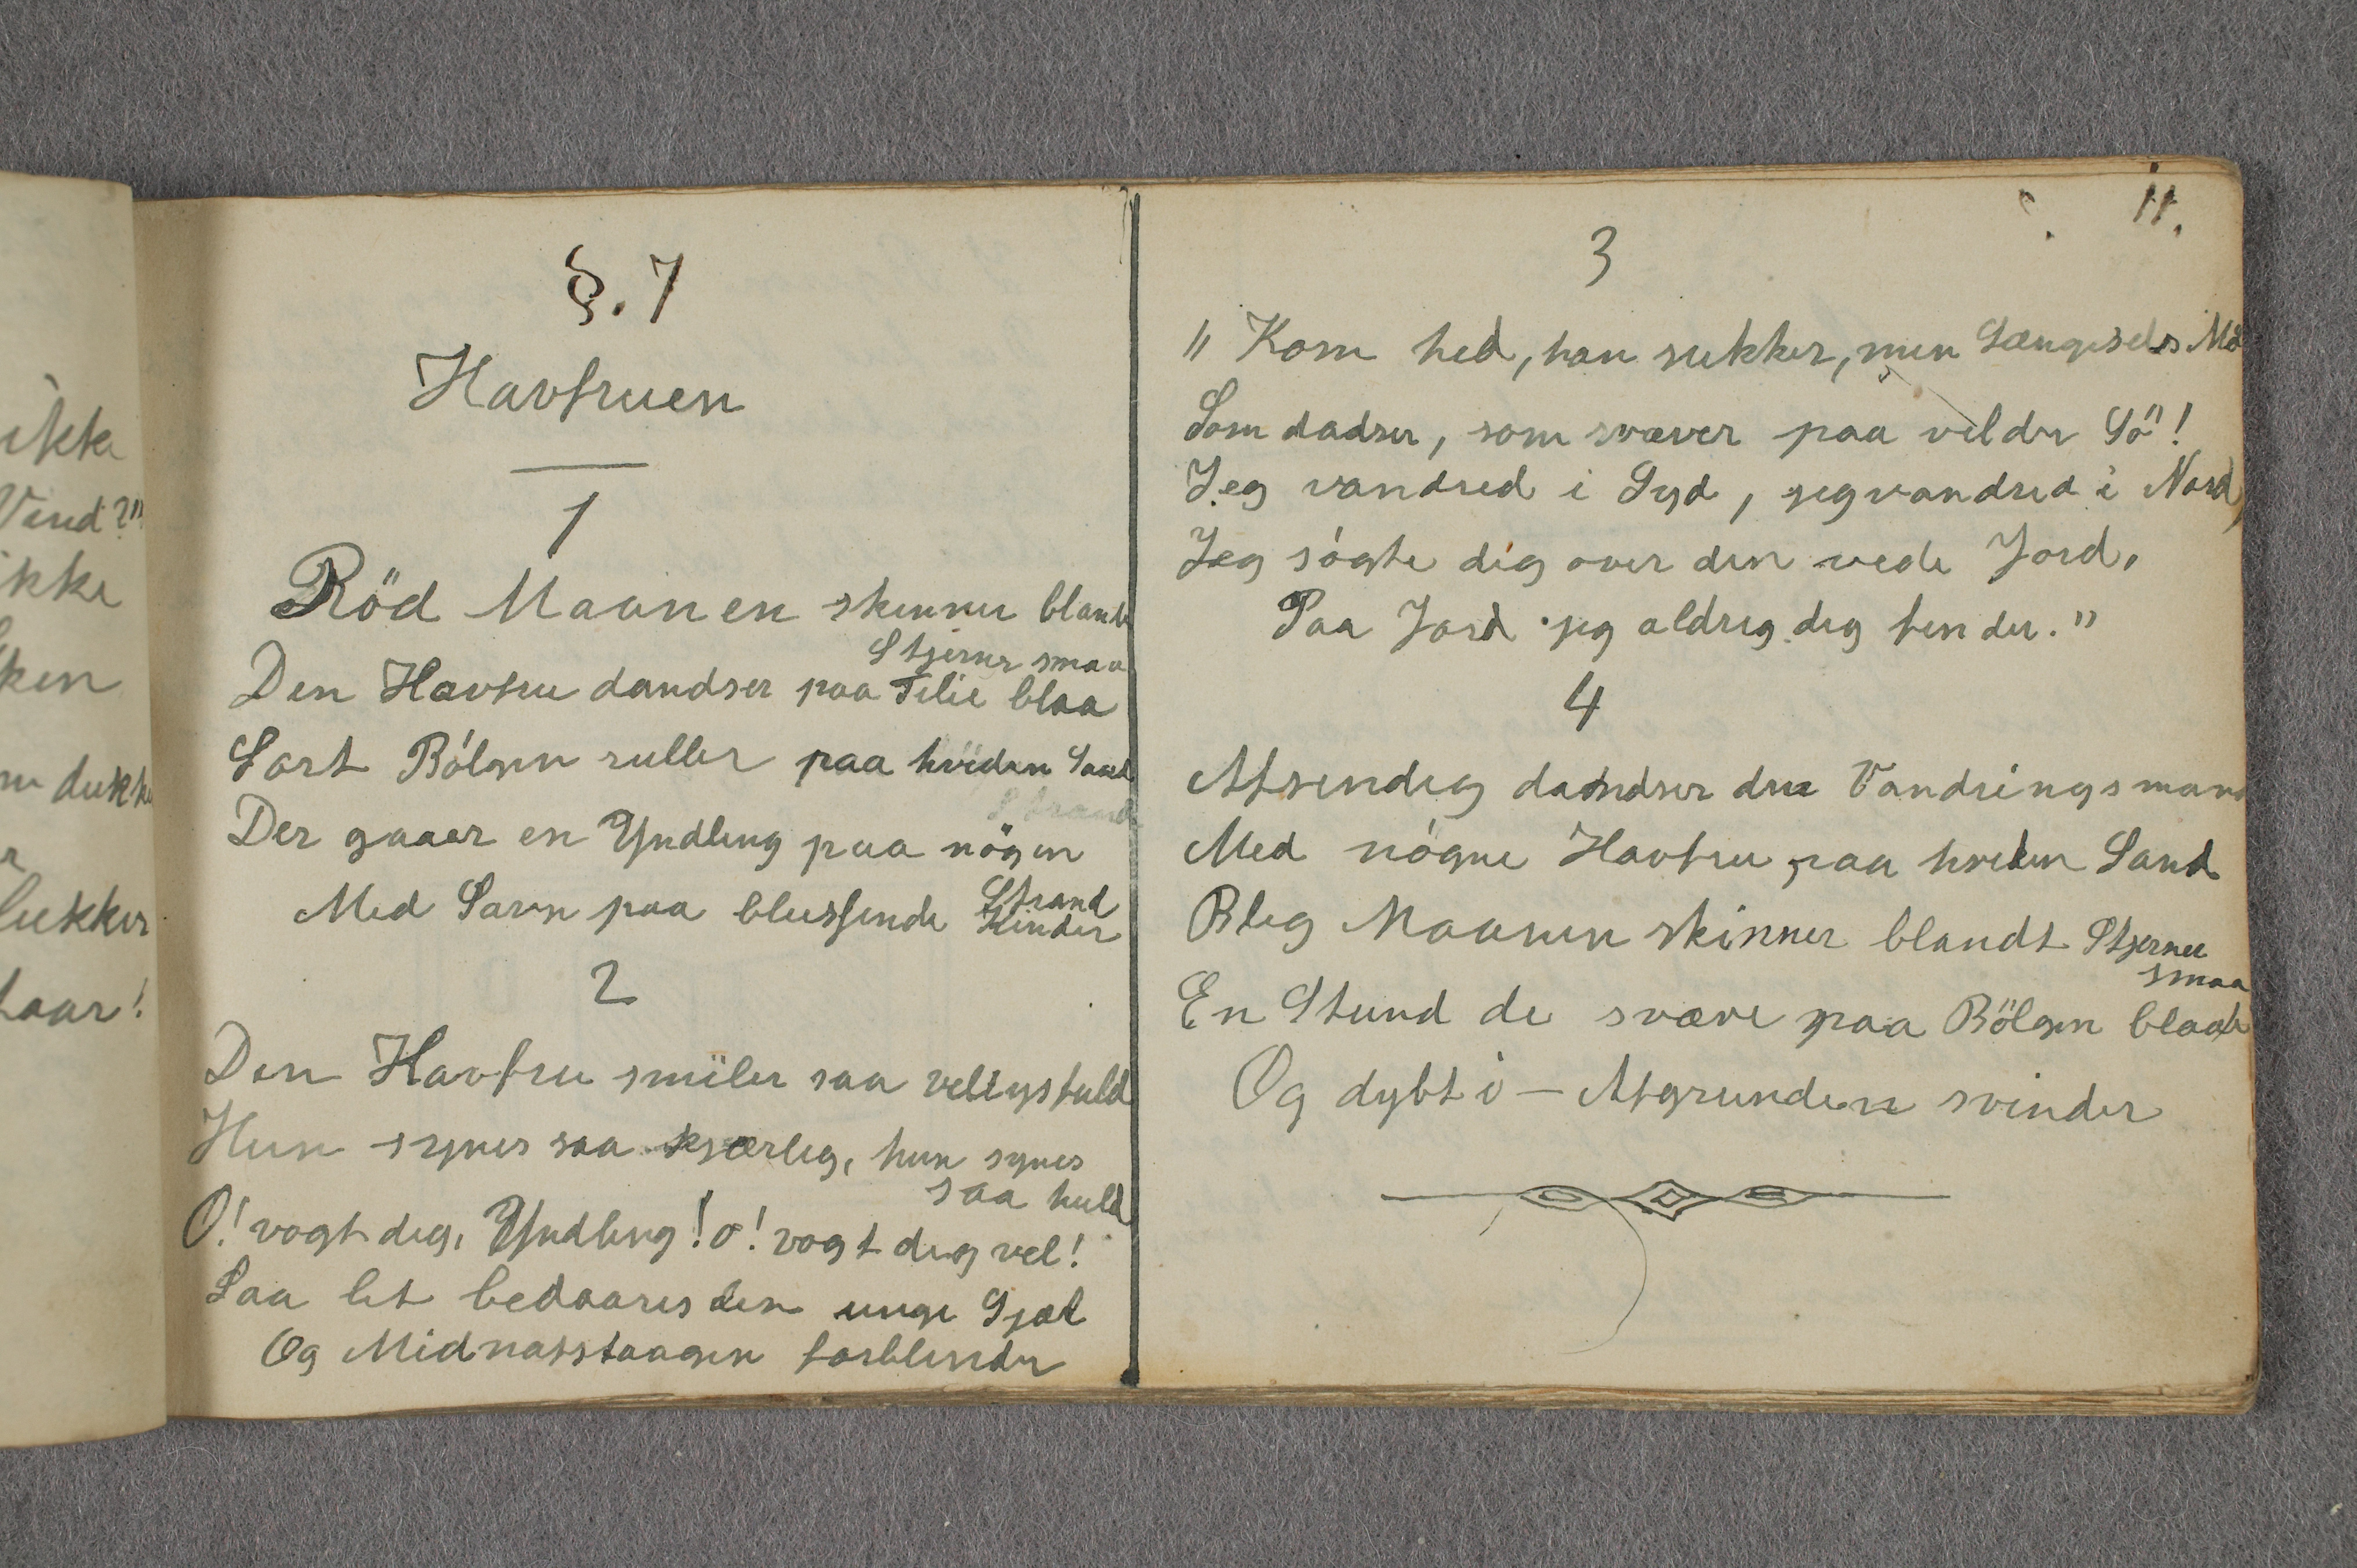 ikke
Vind?"
ikke
ken
dukke
r
lukker
taar!
§. 7
Havfruen
1
Röd Maanen skinner blandt
Stjerner smaa
Den Havfru dandser paa Tilie blaa
Sort Bölgen ruller paa hviden Sand
Strand
Der gaaer en Yndling paa nögen
Strand
Med Savn paa blussende Kinder
2
Den Havfru smiler saa vellystfuld
Hun synes saa kjærlig, hun synes
saa huld
O! vogt dig, Yndling! o! vogt dig vel!
Saa let bedaares den unge Sjæl
Og Midnatstaagen forblinder
11.
3
"Kom hid, han sukker, min Længsels Mö
Som dadser, som svæver paa vilder Sö!
Jeg vandred i Syd, jeg vandred i Nord,
Jeg sögte dig over den vide Jord,
Paa Jord jeg aldrig dig finder."
4
Afsindig dandser den Vandringsmand
Med nögne Havfru paa hviden Sand
Bleg Maanen skinner blandt Stjerner
smaa
En Stund de svæve paa Bölgen blaa
Og dybt i – Afgrunden svinder